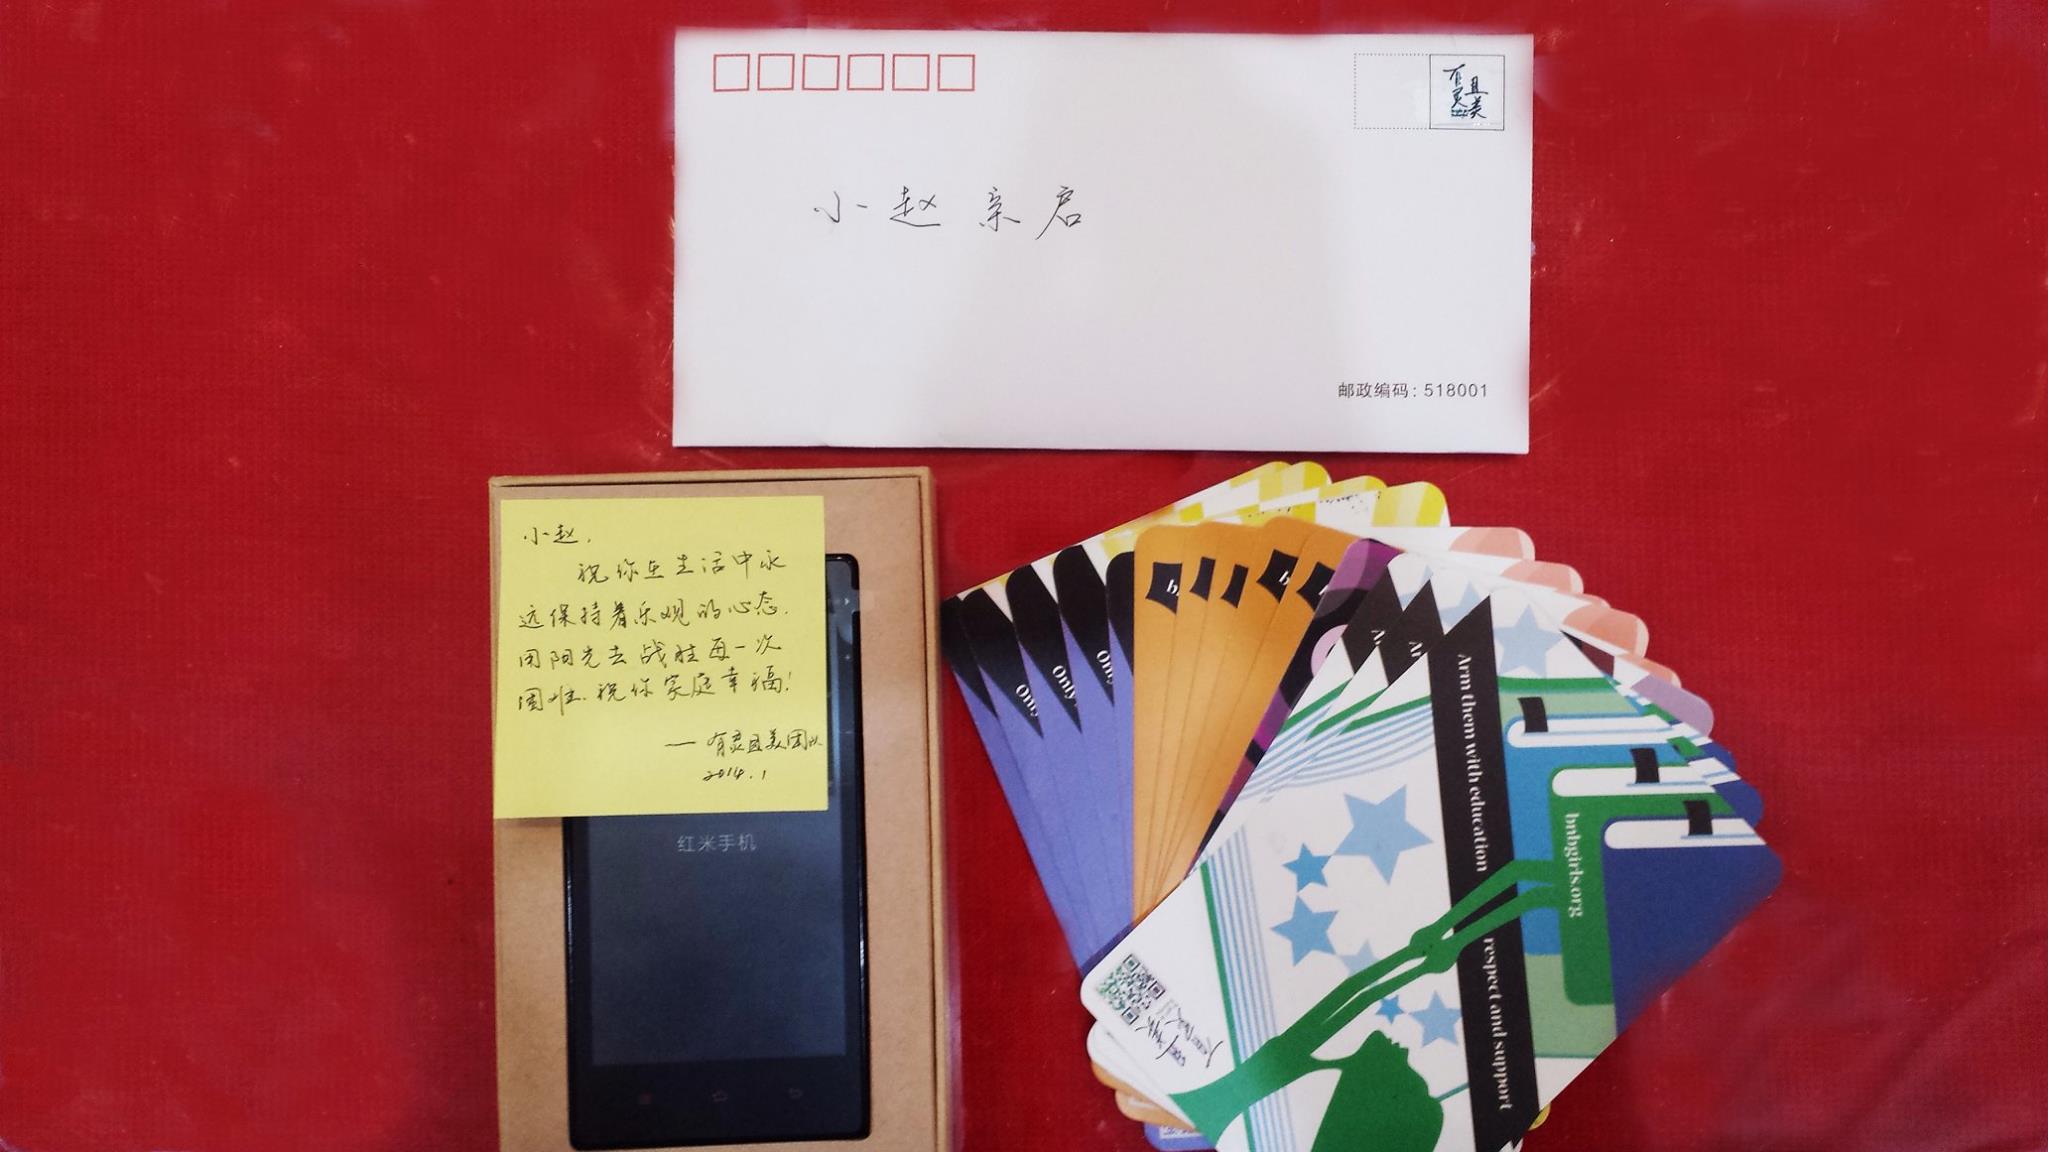 有灵且美
小赵亲启
邮政编码：518001
小赵，
祝你在生活中永
远保持着乐观的心态，
用阳光去战胜每一次
困难．祝你家庭幸福！
— 有灵且美团队
2014.1
红米手机
Only
Only
Only
b
b
A
Ar
Arm them with education
respect and support
bnbgirls.org